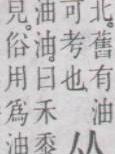 北。舊有油
可考也
油油。曰禾黍
見。俗用爲油